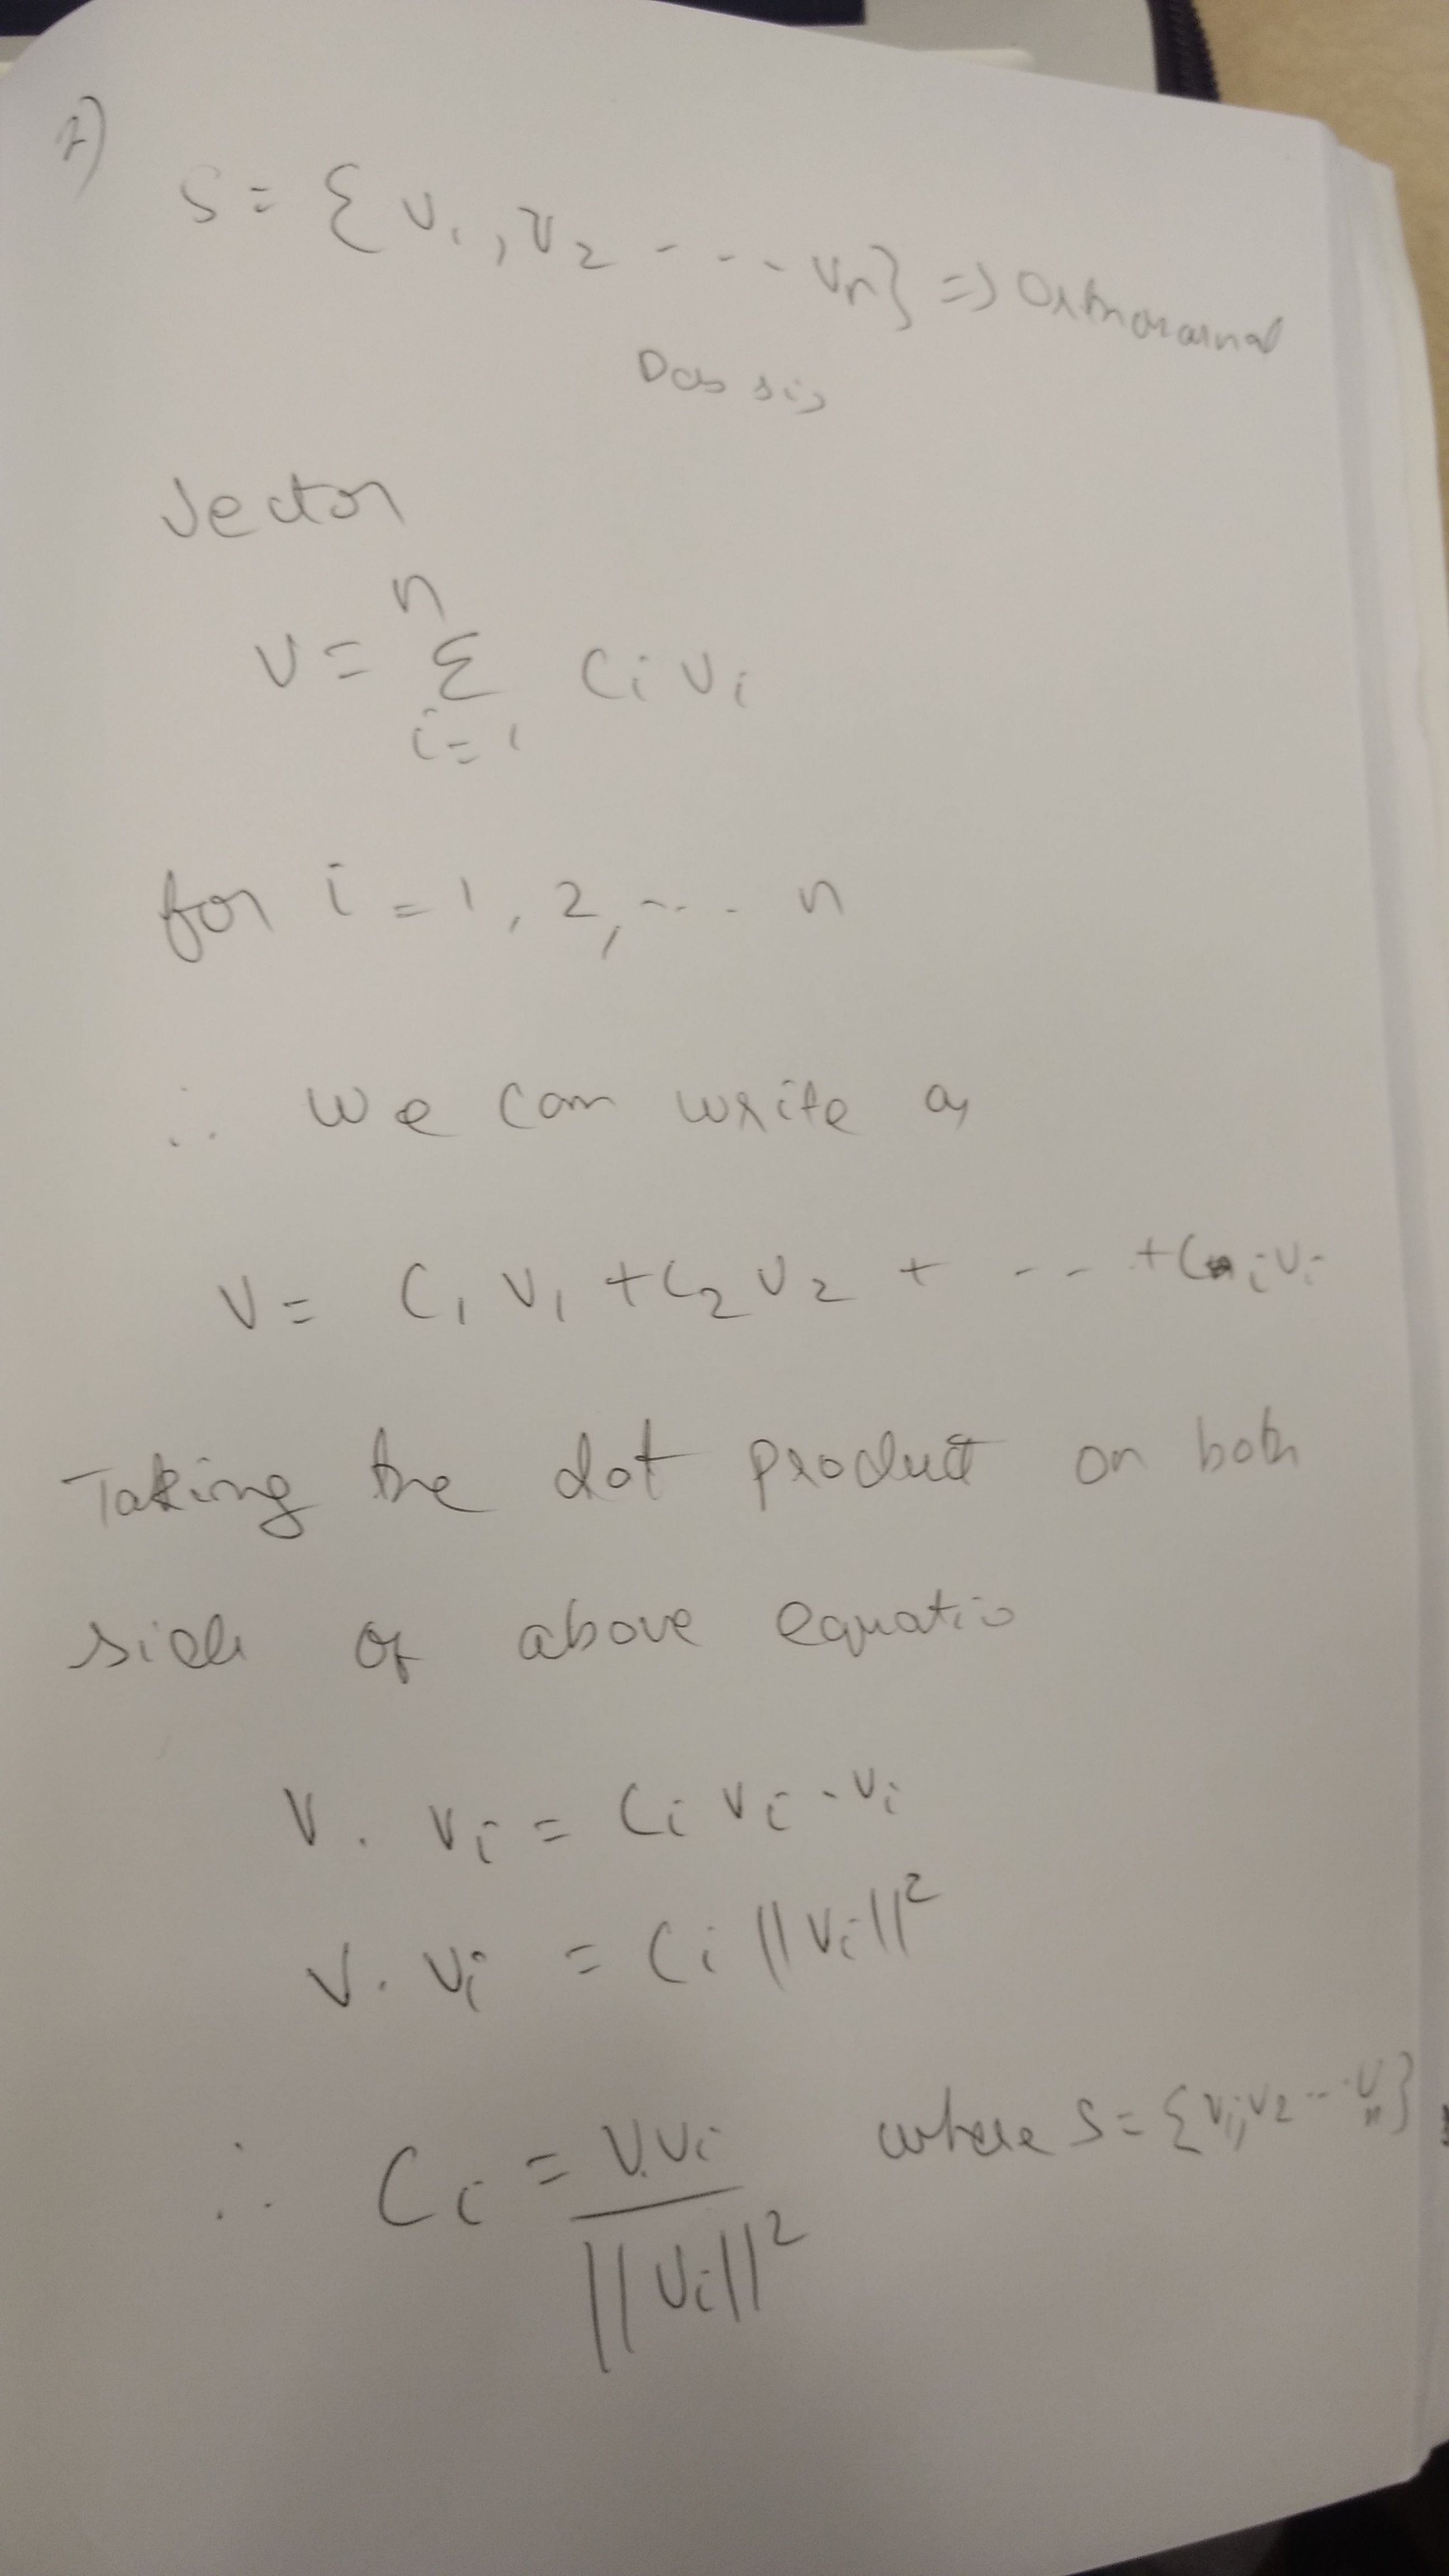 1)
S = { v1, v2 - - -. vn} => Orthonormal
Bassis
Vector
n
v = Σ Ci vi
i=1
for i = 1, 2, -.. - n
∴ We can write as
V = C1 V1 + C2 V2 + - - - + Ci vi
Taking the dot product on both
side of above equatio
V. Vi = Ci Vi . Vi
V. Vi = Ci ||Vi||²
∴ Ci = V.Vi where S = {V1, V2 --- Vn}
||Vi||²